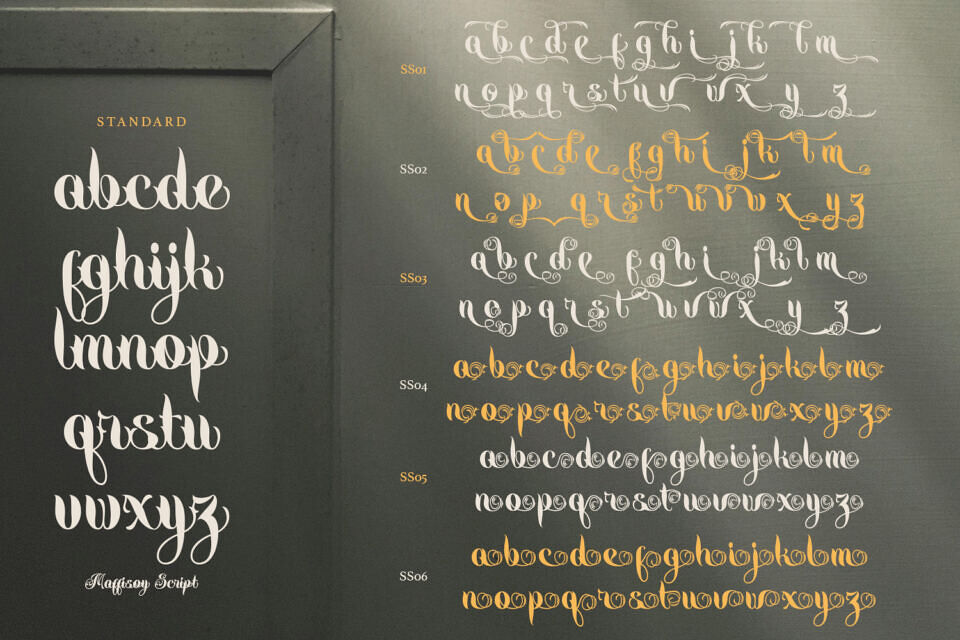 STANDARD
abcde
fghijk
lmnop
qrstu
vwxyz
Maffisoy Script
SS01
abcde fghi jk lm
nopqrstuv wx y z
SS02
abcde fghi jk lm
nop qrst uvw x yz
SS03
abcde fghi jklm
nopqrst uvwx y z
SS04
abcdefghijklm
nopqrstuvwxyz
SS05
abcdefghijklm
nopqrstuvwxyz
SS06
abcdefghijklm
nopqrstuvwxyz